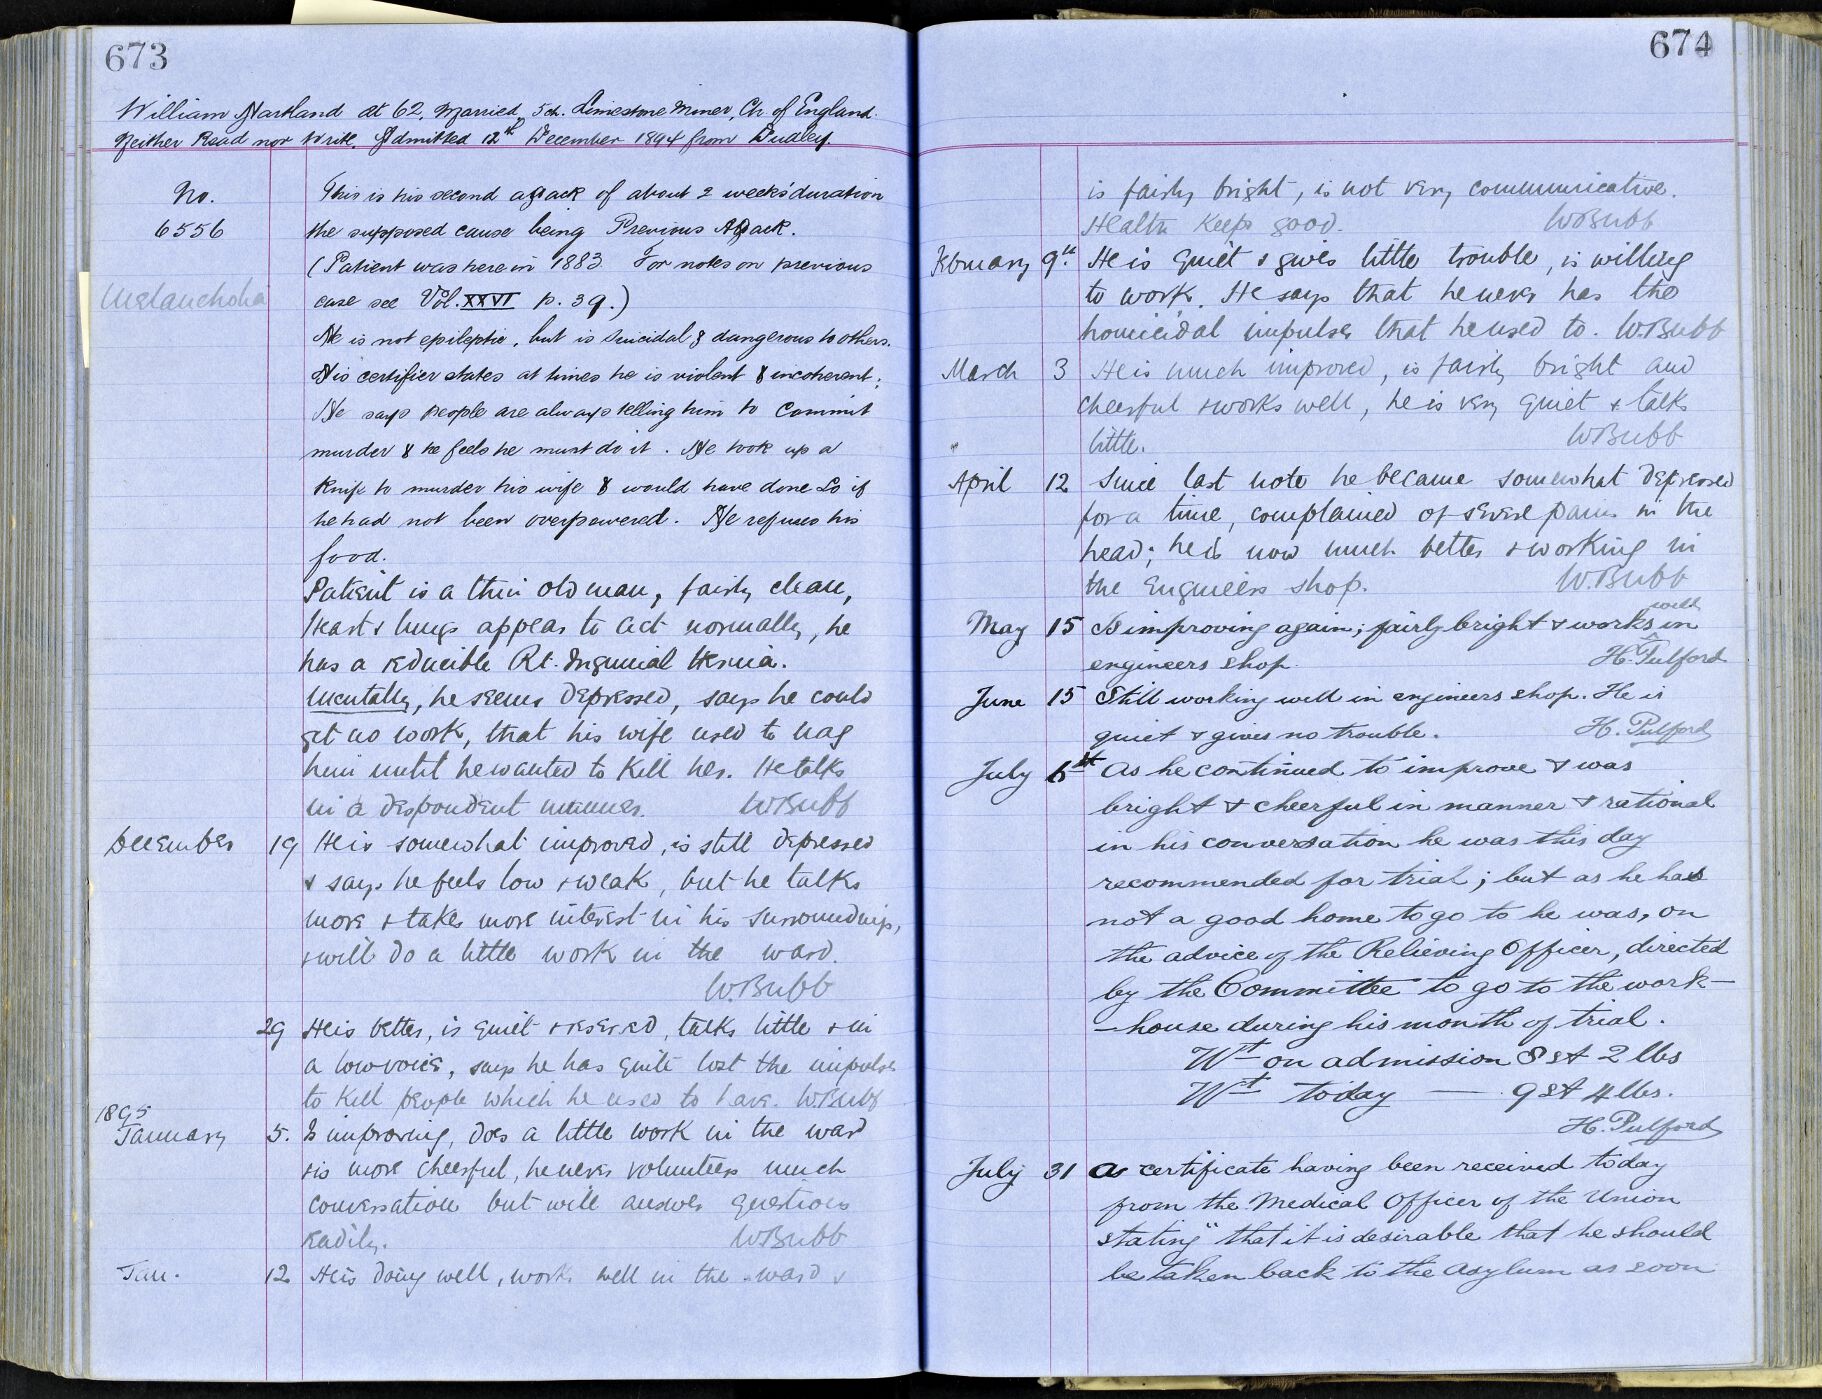 673
William Markland æt 62, Married, 5 ch. Limestone Miner, Ch. of England.
Neither Read nor Write, Admitted 12th December 1894 from Dudley.
No.
6556
Melancholia
This is his second attack of about 2 weeks' duration
the supposed cause being Previous Attack.
(Patient was here in 1883 For notes on previous
case see Vol. XXVI p. 39.)
He is not epileptic, but is suicidal & dangerous to others.
His certifier states at times he is violent & incoherent;
He says people are always telling him to commit
murder & he feels he must do it. He took up a
knife to murder his wife & would have done so if
he had not been overpowered. He refuses his
food.
Patient is a thin old man, fairly clean,
Heart & lungs appear to act normally, he
has a reducible Rt. Inguinal Hernia.
Mentally, he seems depressed, says he could
get no work, that his wife used to nag
him until he wanted to kill her. He talks
in a despondent manner. W Bubb
December 19 He is somewhat improved, is still depressed
& says he feels low & weak, but he talks
more & takes more interest in his surroundings,
& will do a little work in the ward.
W. Bubb
29 He is better, is quiet & reserved, talks little & in
a low voice, says he has quite lost the impulse
to kill people which he used to have. W Bubb
1895
January 5. Is improving, does a little work in the ward
& is more cheerful, he never volunteers much
conversation but will answer questions
readily. W Bubb
Jan. 12 He is doing well, works well in the ward &
674
is fairly bright, is not very communicative.
Health keeps good. W Bubb
February 9th. He is quiet & gives little trouble, is willing
to work. He says that he never has the
homicidal impulses that he used to. W. Bubb
March 3 He is much improved, is fairly bright and
cheerful & works well, he is very quiet & talks
little. W Bubb
April 12 Since last note he became somewhat depressed
for a time, complained of severe pains in the
head; he is now much better & working in
the Engineers shop. W. Bubb
May 15 Is improving again; fairly bright & works well in
engineers shop. H. Pulford
June 15 Still working well in engineers shop. He is
quiet & gives no trouble. H. Pulford
July As he continued to improve & was
bright & cheerful in manner & rational
in his conversation he was this day
recommended for trial; but as he has
not a good home to go to he was, on
the advice of the Relieving Officer, directed
by the Committee to go to the work-
-house during his month of trial.
Wt on admission 8 st 2 lbs
Wt today — 9 st 4 lbs.
H. Pulford
July 31 A certificate having been received today
from the Medical Officer of the Union
stating "that it is desirable that he should
be taken back to the Asylum as soon